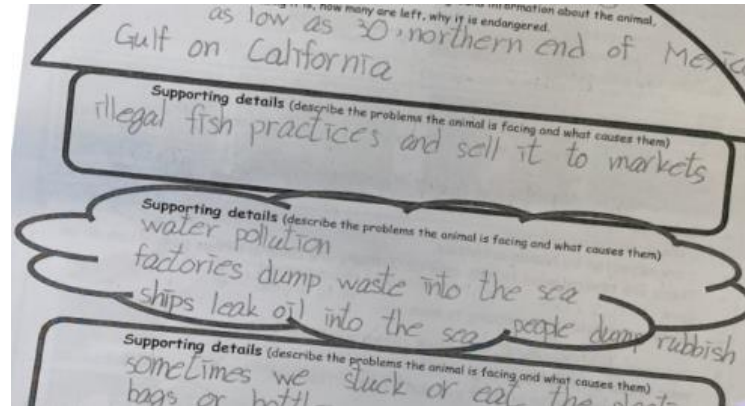 it is, how many are left, why it is endangered. information about the animal,
as low as 30, northern end of
Gulf on California
Supporting details (describe the problems the animal is facing and what causes them)
illegal fish practices and sell it to markets
Supporting details (describe the problems the animal is facing and what causes them)
water pollution
factories dump waste into the sea
ships leak oil into the sea people dump rubbish
Supporting details (describe the problems the animal is facing and what causes them)
sometimes we stuck or eat the
bags or